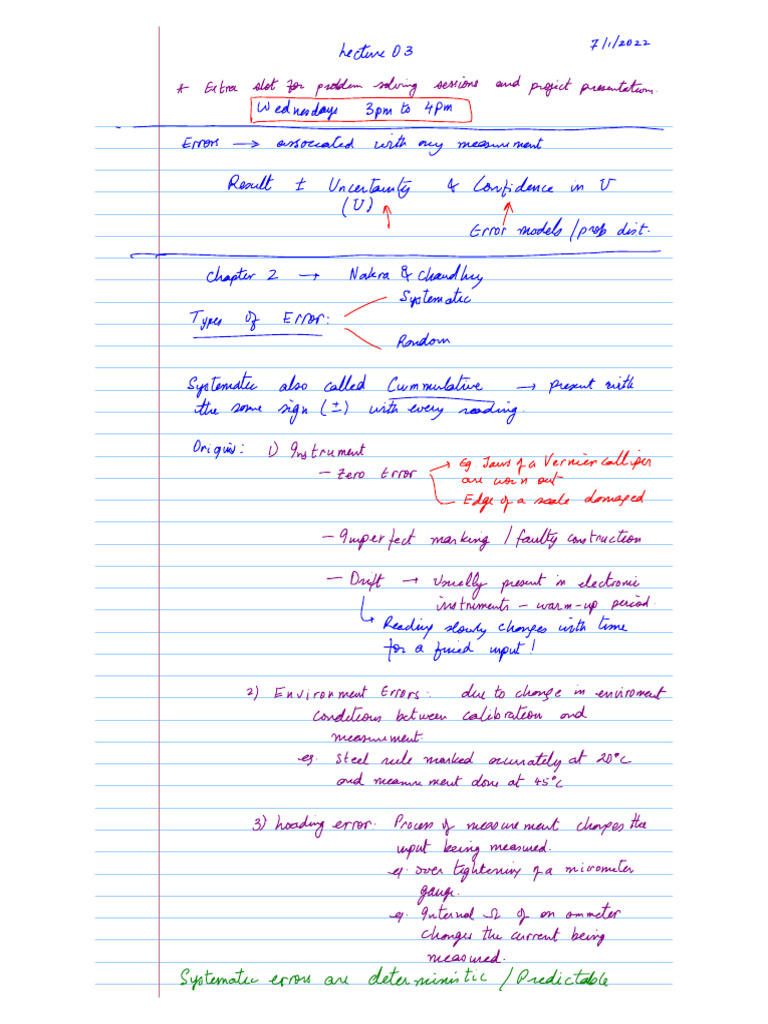 Lecture 03
7/1/2022
* Extra slot for problem solving sessions and project presentation.
Wednesdays 3pm to 4pm
Errors → associated with any measurement
Result ± Uncertainty & Confidence in U
(U)
Error models / prob dist.
Chapter 2 → Nakra & Chaudhry
Systematic
Types of Error:
Random
Systematic also called Cummulative → present with
the same sign (±) with every reading.
Origins: 1) Instrument
- Zero Error → Eg Jaws of a Vernier calliper
are worn out
Edge of a scale damaged
- Imperfect marking / faulty construction
- Drift → Usually present in electronic
instruments - warm-up period.
Reading slowly changes with time
for a fixed input!
2) Environment Errors: due to change in enviroment
conditions between calibration and
measurement.
eg. Steel rule marked accurately at 20°C
and measurement done at 45°C
3) Loading error: Process of measurement changes the
input being measured.
eg. over tightening of a micrometer
gauge.
eg. Internal Ω of an ammeter
changes the current being
measured.
Systematic errors are deterministic / Predictable